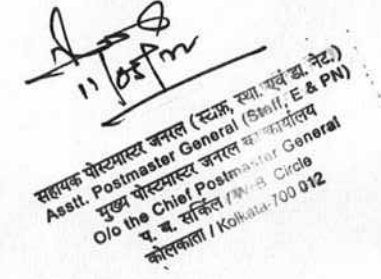 11/05/22
सहायक पोस्टमास्टर जनरल (स्टाफ, स्था. एवं डा. नेट.)
Asstt. Postmaster General (Staff, E & PN)
मुख्य पोस्टमास्टर जनरल का कार्यालय
O/o the Chief Postmaster General
प. ब. सर्किल / W.B. Circle
कोलकाता / Kolkata-700 012